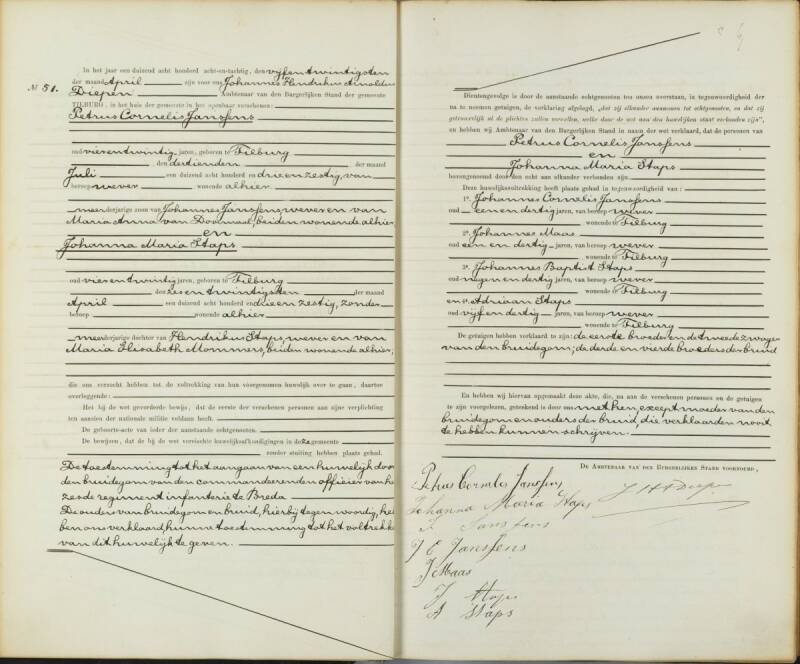 In het jaar een duizend acht honderd acht-en-tachtig, den vijfentwintigsten
der maand April zijn voor ons Johannes Hendrikus Arnoldus
№ 51. Diepen Ambtenaar van den Burgerlijken Stand der gemeente
TILBURG, in het huis der gemeente in het openbaar verschenen:
Petrus Cornelis Janssens
oud vierentwintig jaren, geboren te Tilburg
den dertienden der maand
Juli een duizend acht honderd en drieenzestig, van
beroep wever wonende alhier
meerderjarige zoon van Johannes Janssens, wever en van
Maria Anna van Dooremaal, beiden wonende alhier,
en
Johanna Maria Staps
oud vierentwintig jaren, geboren te Tilburg
den zesentwintigsten der maand
April een duizend acht honderd en drieenzestig, zonder
beroep wonende alhier
meerderjarige dochter van Hendrikus Staps, wever en van
Maria Elisabeth Mommers, beiden wonende alhier,
die ons verzocht hebben tot de voltrekking van hun voorgenomen huwelijk over te gaan, daartoe
overleggende:
Het bij de wet gevorderde bewijs, dat de eerste der verschenen personen aan zijne verplichting
ten aanzien der nationale militie voldaan heeft.
De geboorte-acte van ieder der aanstaande echtgenooten.
De bewijzen, dat de bij de wet vereischte huwelijksafkondigingen in deze gemeente
zonder stuiting hebben plaats gehad.
De toestemming tot het aangaan van een huwelijk door
den bruidegom van den commandeerenden officier van het
zesde regiment infanterie te Breda
De ouders van bruidegom en bruid, hierbij tegenwoordig, heb
ben ons verklaard hunne toestemming tot het voltrekken
van dit huwelijk te geven.
Dientengevolge is door de aanstaande echtgenooten ten onzen overstaan, in tegenwoordigheid der
na te noemen getuigen, de verklaring afgelegd, „dat zij elkander aannemen tot echtgenooten, en dat zij
getrouwelijk al de plichten zullen vervullen, welke door de wet aan den huwelijken staat verbonden zijn",
en hebben wij Ambtenaar van den Burgerlijken Stand in naam der wet verklaard, dat de personen van
Petrus Cornelis Janssens
en
Johanna Maria Staps
bovengenoemd door den echt aan elkander verbonden zijn.
Deze huwelijksvoltrekking heeft plaats gehad in tegenwoordigheid van:
1º. Johannes Cornelis Janssens
oud eenendertig jaren, van beroep wever
wonende te Tilburg
2º. Johannes Maas
oud eenendertig jaren, van beroep wever
wonende te Tilburg
3º. Johannes Baptist Staps
oud negenendertig jaren, van beroep wever
wonende te Tilburg
en 4º. Adriaan Staps
oud vijfendertig jaren, van beroep wever
wonende te Tilburg
De getuigen hebben verklaard te zijn: de eerste broeder en de tweede zwager
van den bruidegom; de derde en vierde broeders der bruid
En hebben wij hiervan opgemaakt deze akte, die, na aan de verschenen personen en de getuigen
te zijn voorgelezen, geteekend is door ons met hen, except moeder van den
bruidegom en ouders der bruid, die verklaarden nooit
te hebben kunnen schrijven.
DE AMBTENAAR VAN DEN BURGERLIJKEN STAND VOORNOEMD,
Petrus Cornelis Janssens
Johanna Maria Staps J H A Diepen
Janssens
J C Janssens
J Maas
J Staps
A Staps